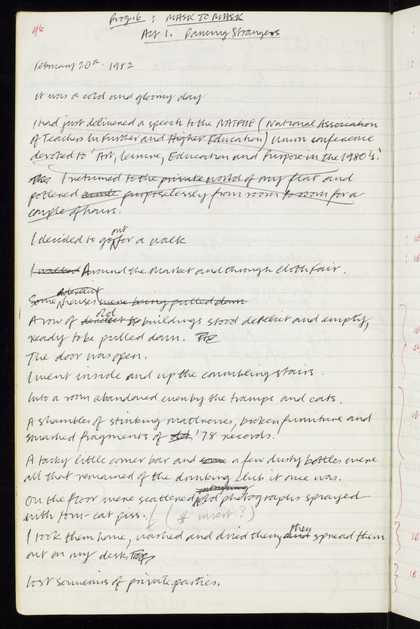 Prologue : MASK TO MASK
Act 1. Dancing Strangers
February 20th 1982
It was a cold and gloomy day
I had just delivered a speech to the NATFHE (National Association
of Teachers In Further and Higher Education) Union conference
devoted to 'Art, Leisure, Education and Purpose in the 1980's.'
I returned to the private world of my flat and
pottered purposelessly from room to room for a
couple of hours.
I decided to go out for a walk
I walked Around the Market and through Cloth Fair.
Some derelict houses were being pulled down
A row of derelict old buildings stood derelict and empty,
ready to be pulled down.
The door was open.
I went inside and up the crumbling stairs.
Into a room abandoned even by the tramps and cats.
A shambles of stinking mattresses, broken furniture and
smashed fragments of old '78 records.
A tacky little corner bar and some a few dusty bottles were
all that remained of the drinking club it once was.
On the floor were scattered old photographs sprayed
with tom-cat piss. (I invent?)
I took them home, washed and dried them, and then spread them
out on my desk top
Lost souvenirs of private parties.